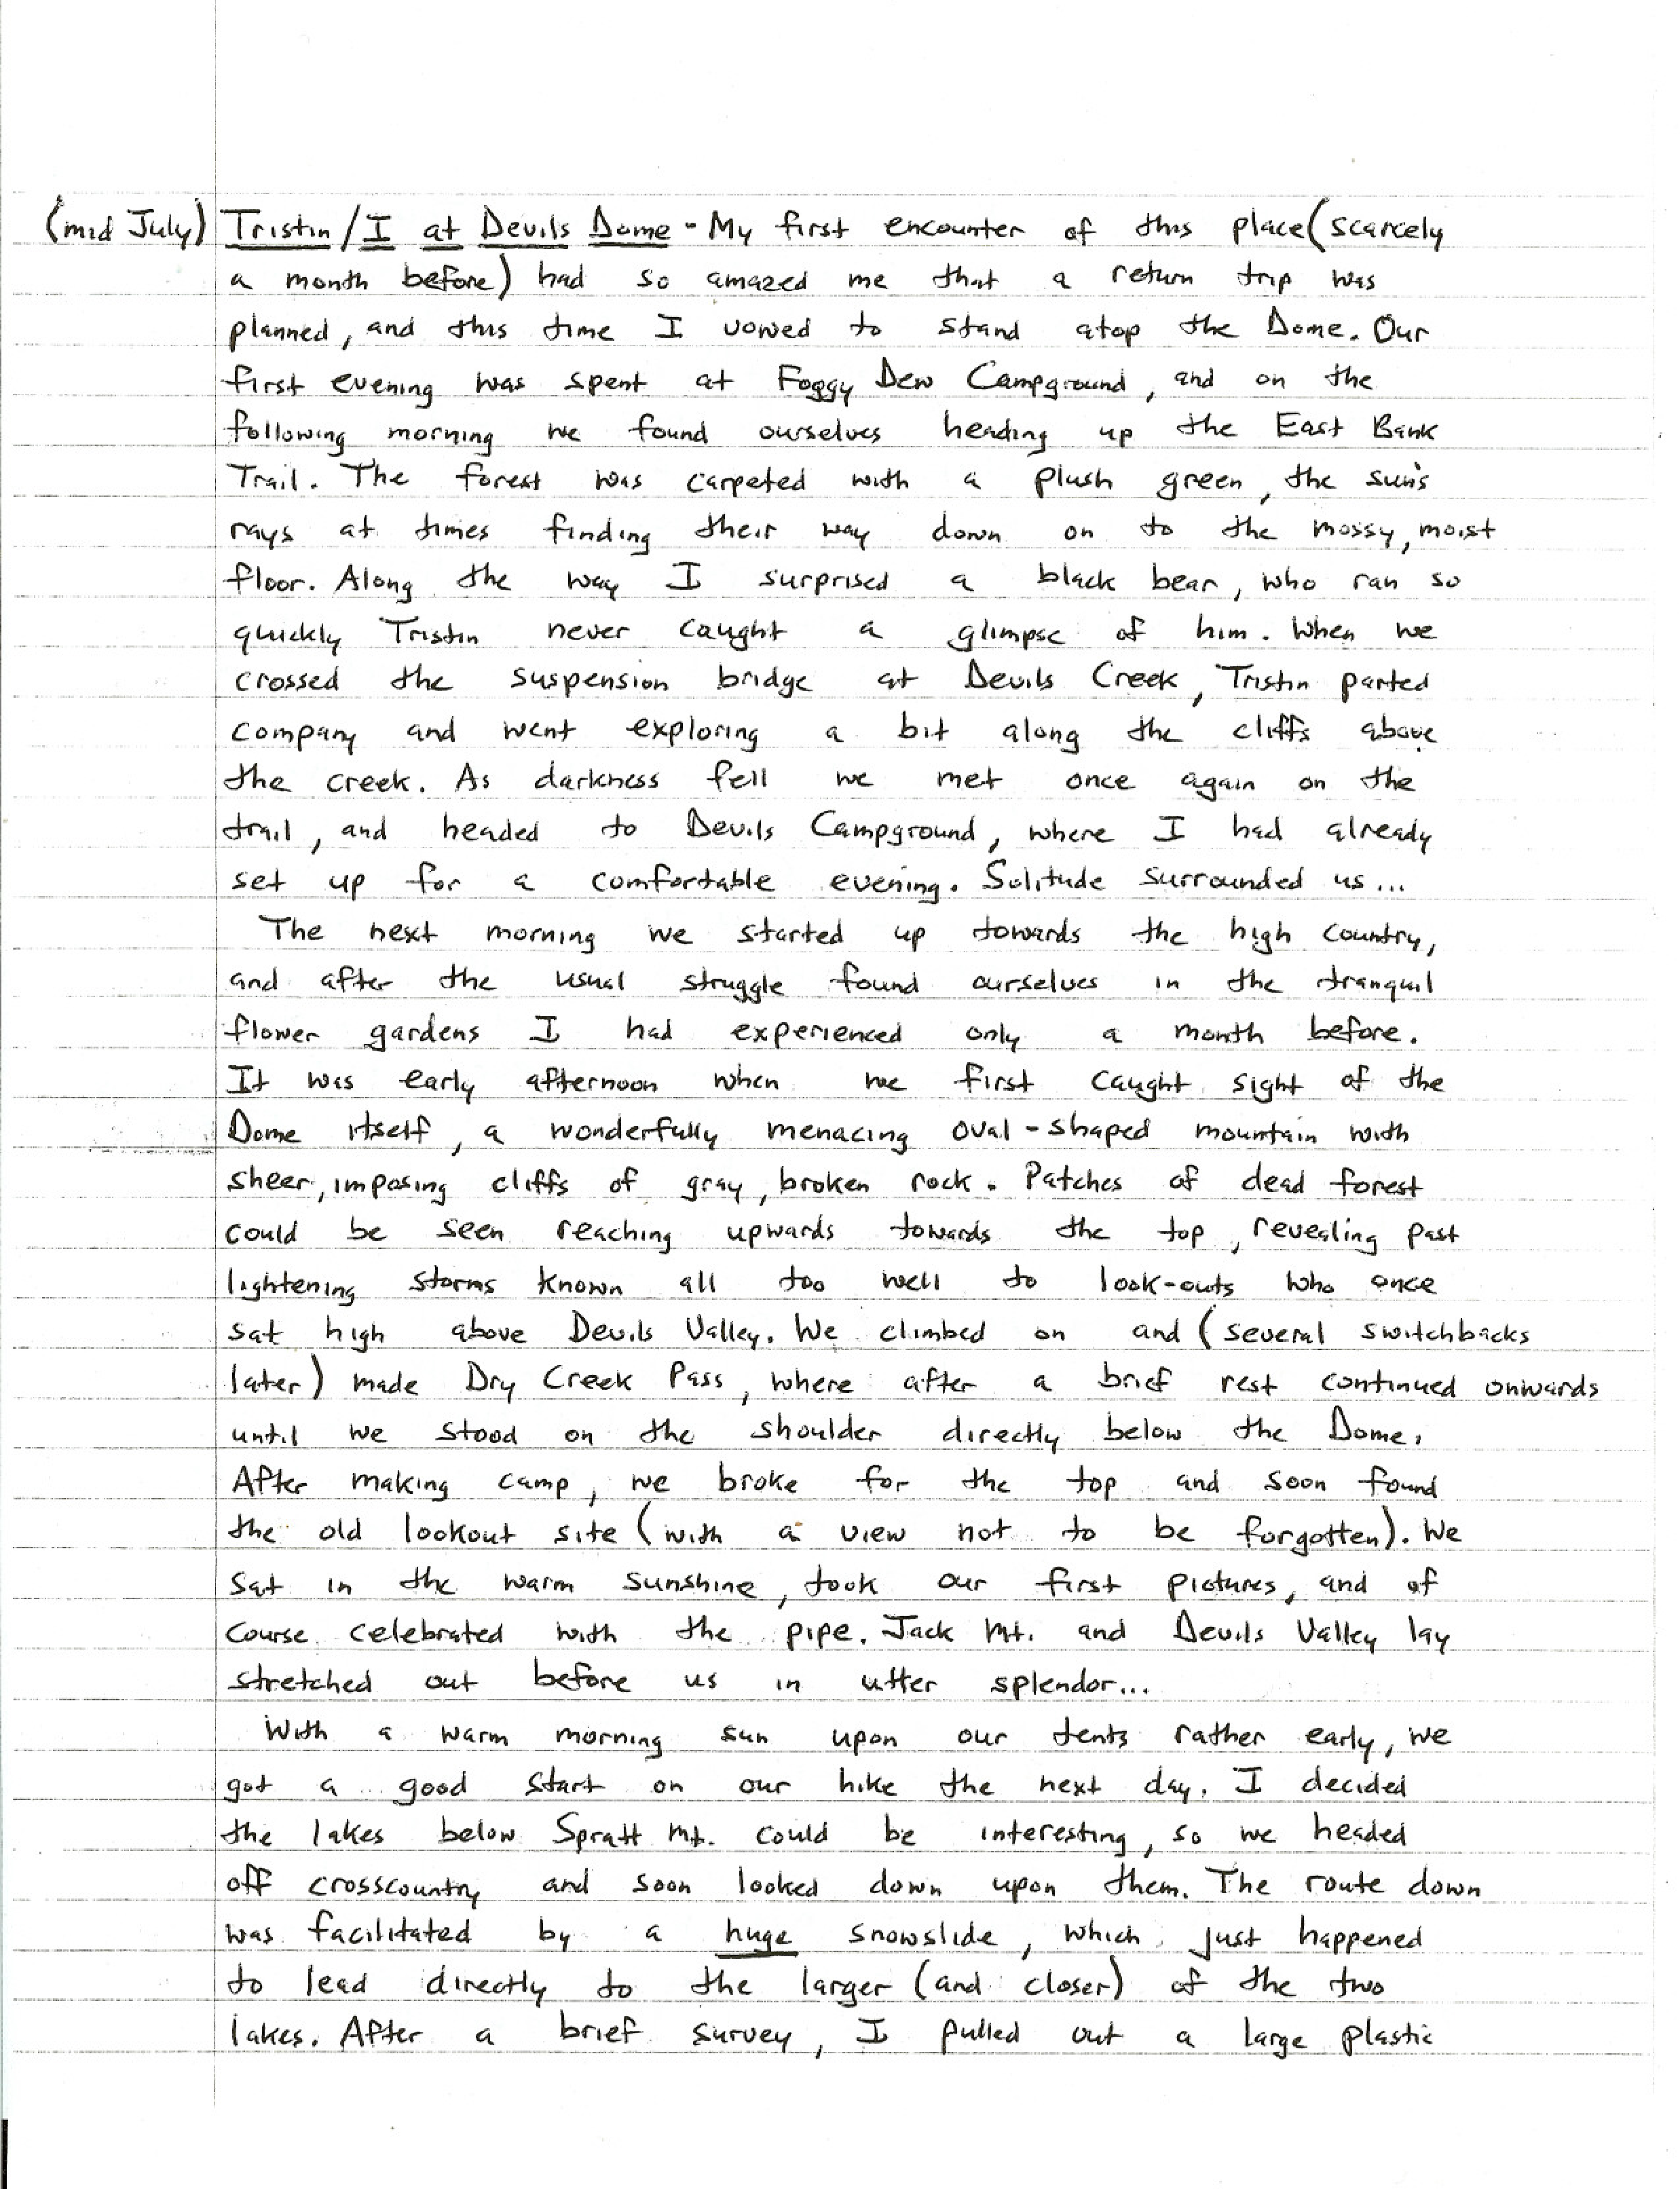 (mid July) Tristin/I at Devils Dome - My first encounter of this place (scarcely
a month before) had so amazed me that a return trip was
planned, and this time I vowed to stand atop the Dome. Our
first evening was spent at Foggy Dew Campground, and on the
following morning we found ourselves heading up the East Bank
Trail. The forest was carpeted with a plush green, the sun's
rays at times finding their way down on to the mossy, moist
floor. Along the way I surprised a black bear, who ran so
quickly Tristin never caught a glimpse of him. When we
crossed the suspension bridge at Devils Creek, Tristin parted
company and went exploring a bit along the cliffs above
the creek. As darkness fell we met once again on the
trail, and headed to Devils Campground, where I had already
set up for a comfortable evening. Solitude surrounded us...
The next morning we started up towards the high country,
and after the usual struggle found ourselves in the tranquil
flower gardens I had experienced only a month before.
It was early afternoon when we first caught sight of the
Dome itself, a wonderfully menacing oval-shaped mountain with
sheer, imposing cliffs of gray, broken rock. Patches of dead forest
could be seen reaching upwards towards the top, revealing past
lightening storms known all too well to look-outs who once
sat high above Devils Valley. We climbed on and (several switchbacks
later) made Dry Creek Pass, where after a brief rest continued onwards
until we stood on the shoulder directly below the Dome.
After making camp, we broke for the top and soon found
the old lookout site (with a view not to be forgotten). We
sat in the warm sunshine, took our first pictures, and of
course celebrated with the pipe. Jack Mt. and Devils Valley lay
stretched out before us in utter splendor...
With a warm morning sun upon our tents rather early, we
got a good start on our hike the next day. I decided
the lakes below Spratt Mt. could be interesting, so we headed
off crosscountry and soon looked down upon them. The route down
was facilitated by a huge snowslide, which just happened
to lead directly to the larger (and closer) of the two
lakes. After a brief survey, I pulled out a large plastic